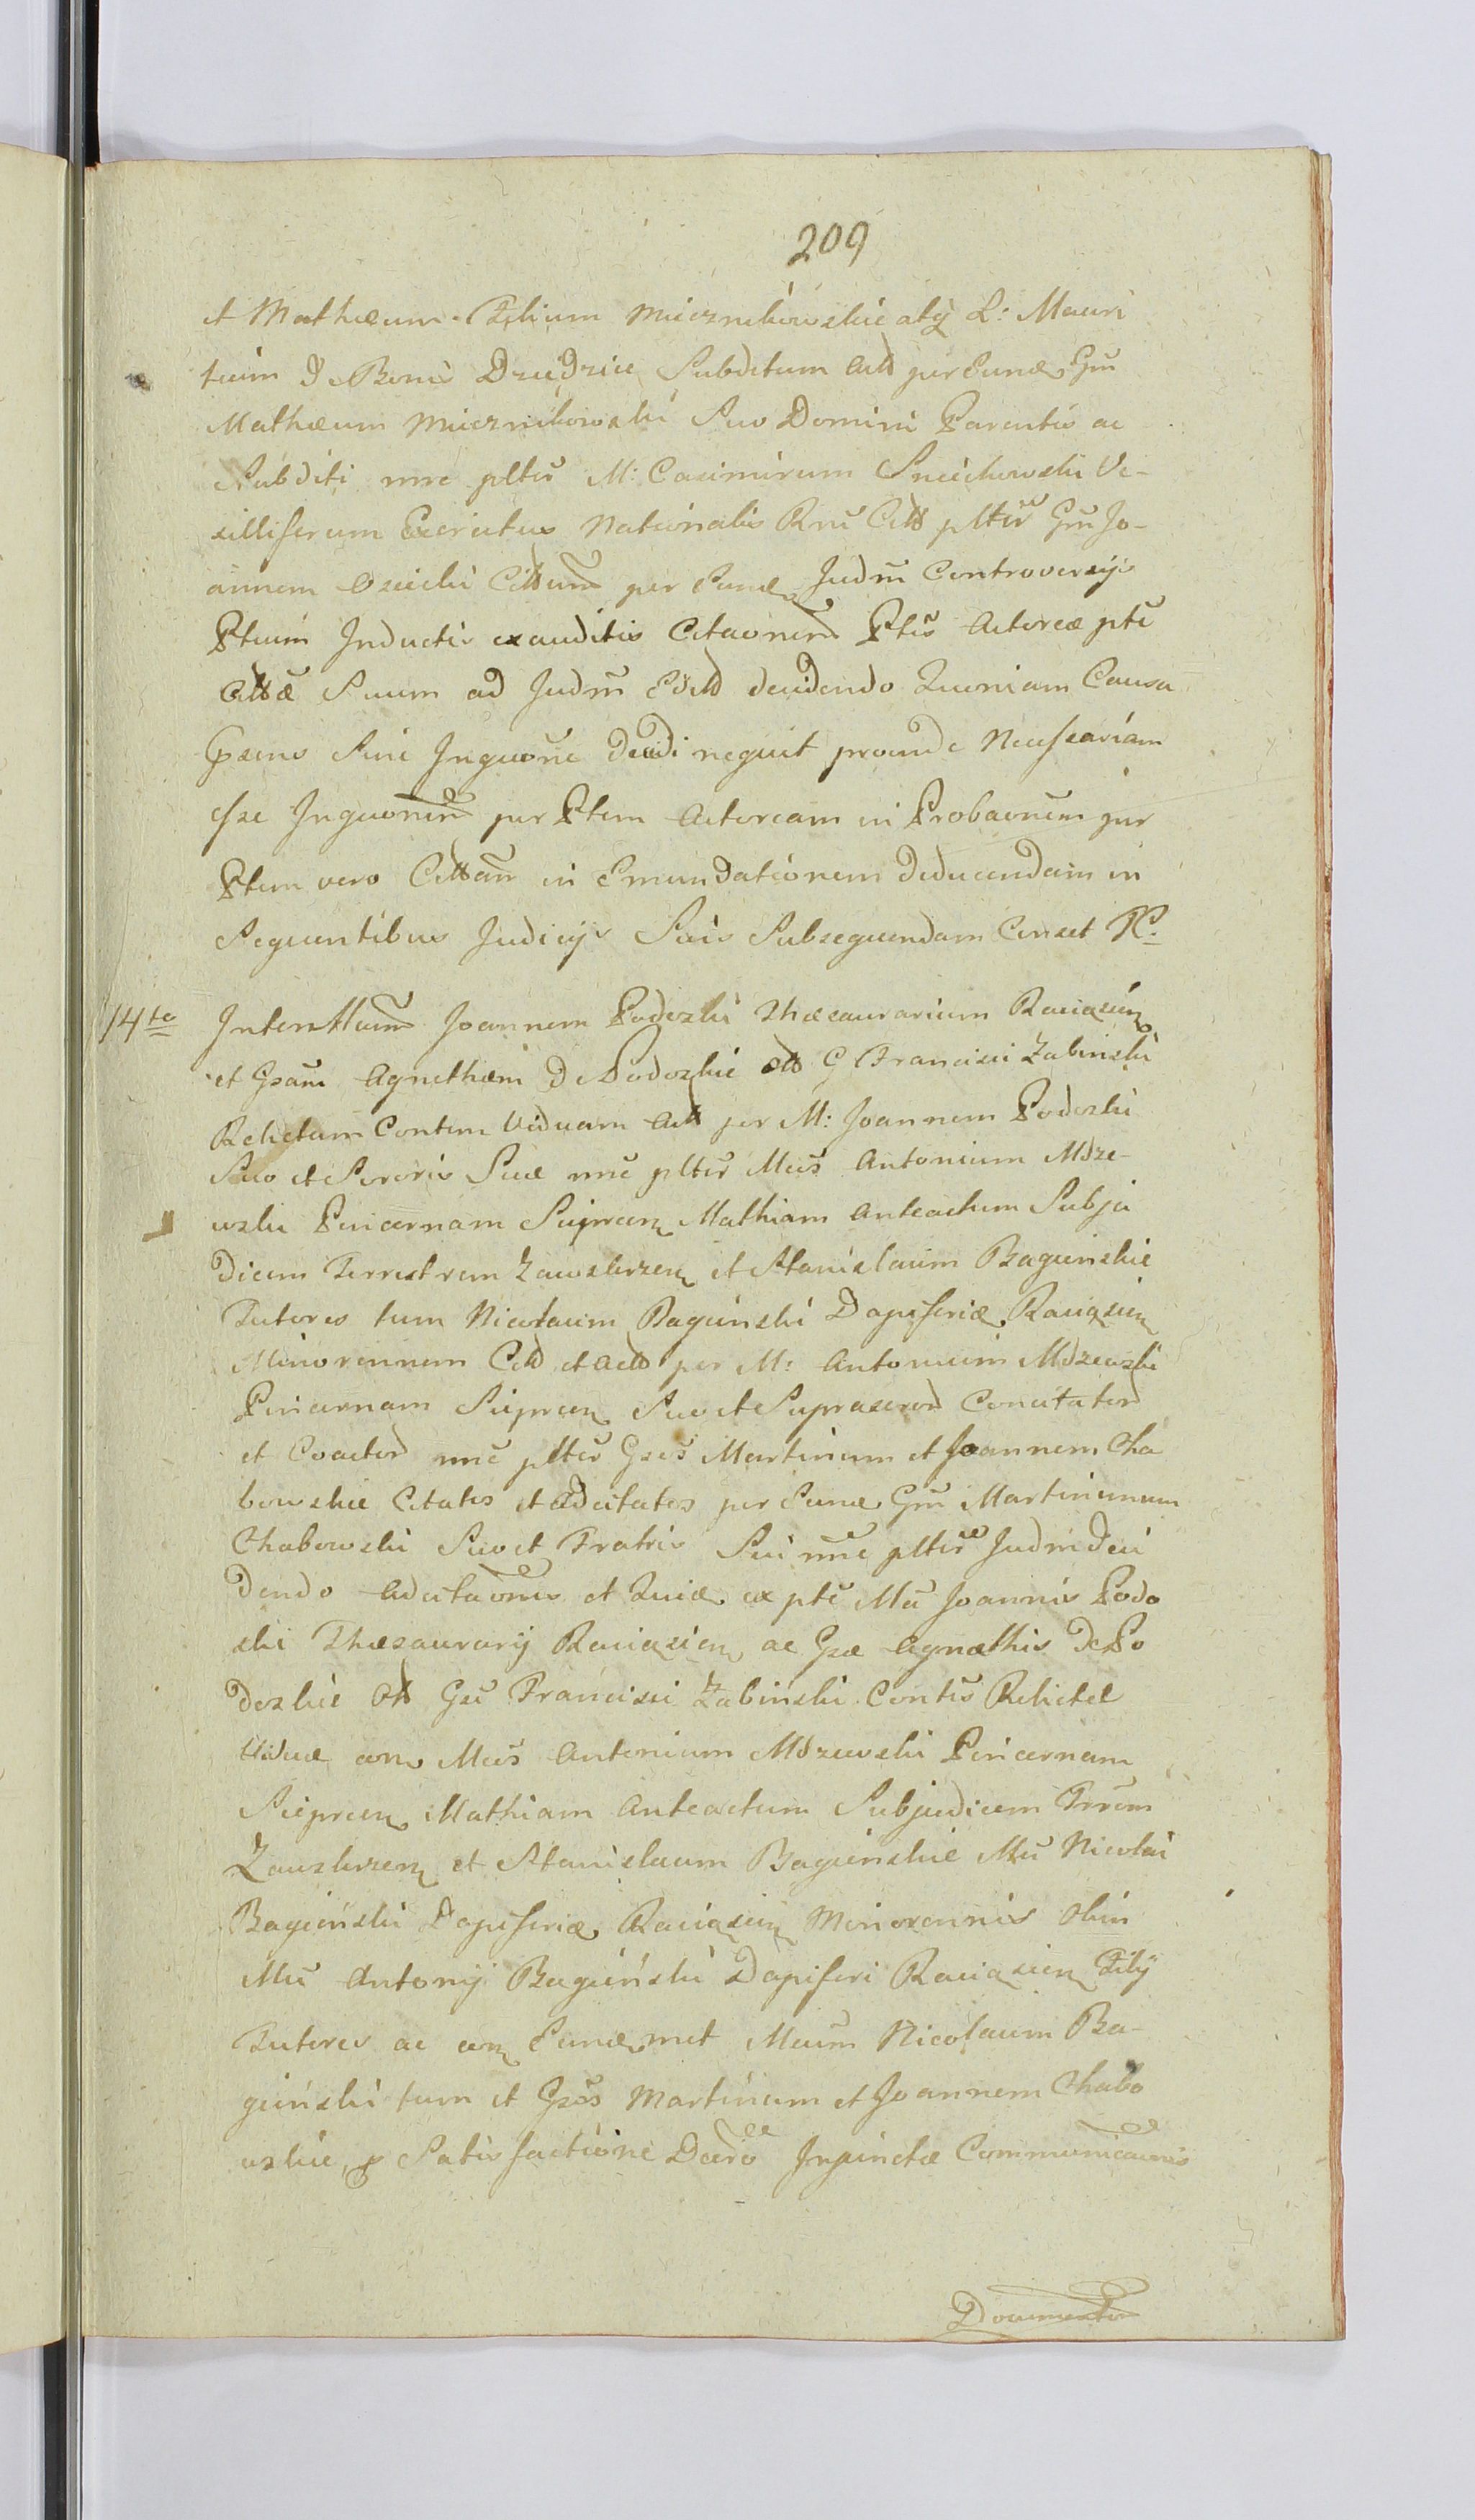 209
et Mathæum Filium Mierznikowskie atq L: Mauri
tium De Bonis Dziedzice Subditum Act per eund Gnu
Mathæum Mierznikowski Suo Domini Parentis ac
Subditi nne pltis M: Casimirum Sniechowski Ve-
xilliferum Exercitus Nationalis Rni Citt pltir Gnu Jo-
annem Osiecki Cittum per eund Judm Controversijs
Ptium Inductis exauditis Citaonem Ptis Actoreæ pte
Cittæ Suum ad Judm decidendo Quoniam Causa
Gpsens Sine Inquone decidi nequit proinde Necessariam
esse Inquonem per Ptem Actoream in Probaonem per
Ptem vero Cittam in Emundationem deducendam in
Sequentibus Judicijs Suis Subsequendam Censet PC.
14to Inter Mum Joannem Podoski Thæsaurarium Raciązien
et Gsam Agnetham De Podoskie Ott G Francisci Zabinski
Relictam Contem Viduam Act per M: Joannem Podoski
Suo et Sororis Suæ nne pltir Mcis Antonium Mdze-
wski Pincernam Sieprcen Mathiam Anteactum Subju
dicem Terrestrem Zawskrzen et Stanislaum Bagienskie
Tutores tum Nicolaum Bagiński Dapiferidæ Raciązien
Minorennem Citt et Actt per M: Antonium Mdzewski
Pincernam Sieprcen Suo et Suprascrord Concitator
et Coactor nne pltir Gsos Martinum et Joannem Cha
bowskie Citatos et Adcitatos per eund Gnu Martinimum
Chabowski Suo et Fratris Sui nne pltir Judm Deci
dendo Adcitaones et Quia ex pte Mci Joannis Podo
ski Thæsaurarij Raciązien ac Gsæ Agnæthis De Po
doskie Ott Gsi Francisci Zabinski Contis Relictæ
Viduæ con Mcos Antonium Mdzewski Pincernam
Sieprcen Mathiam Anteactum Subjudicem Trrem
Zawskrzen et Stanislaum Bagienskie Mci Nicolai
Bagienski Dapiferidæ Raciązien Minorennis Olim
Mci Antonij Bagiński Dapiferi Raciązien Filij
Tutores ac con Eundemet Mcum Nicolaum Ba-
gieński tum et Gsos Martinum et Joannem Chabo
wskie p Satisfactione Decro Injunctæ Communicaonis
Documentor